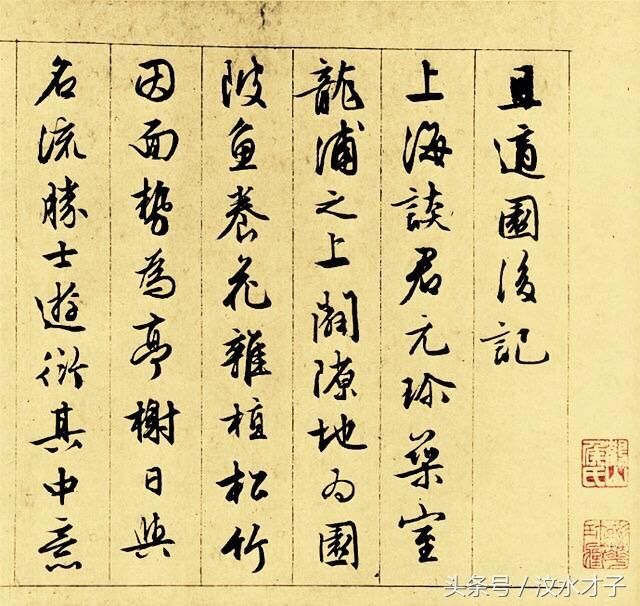 且適園後記
上海談君元珎築室
龍浦之上闢隙地為園
陂魚養花雜植松竹
因面勢為亭榭日與
名流勝士遊衍其中意
頭条号／汶水才子